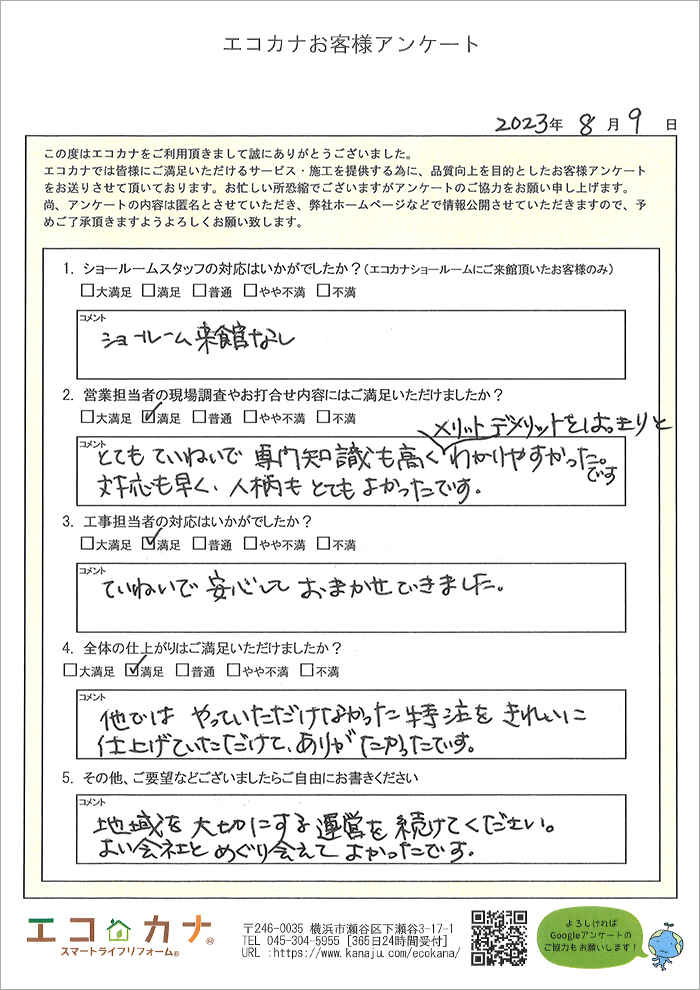 エコカナお客様アンケート
2023年 8月 9日
この度はエコカナをご利用頂きまして誠にありがとうございました。
エコカナでは皆様にご満足いただけるサービス・施工を提供する為に、品質向上を目的としたお客様アンケート
をお送りさせて頂いております。お忙しい所恐縮でございますがアンケートのご協力をお願い申し上げます。
尚、アンケートの内容は匿名とさせていただき、弊社ホームページなどで情報公開させていただきますので、予
めご了承頂きますようよろしくお願い致します。
1. ショールームスタッフの対応はいかがでしたか?(エコカナショールームにご来館頂いたお客様のみ)
□大満足 □満足 □普通 □やや不満 □不満
コメント
ショールーム来館なし
2. 営業担当者の現場調査やお打合せ内容にはご満足いただけましたか?
□大満足 ☑満足 □普通 □やや不満 □不満
コメント
メリットデメリットをはっきりと
とてもていねいで専門知識も高くわかりやすかったです。
対応も早く、人柄もとてもよかったです。
3. 工事担当者の対応はいかがでしたか?
□大満足 ☑満足 □普通 □やや不満 □不満
コメント
ていねいで安心しておまかせできました。
4. 全体の仕上がりはご満足いただけましたか?
□大満足 ☑満足 □普通 □やや不満 □不満
コメント
他ではやっていただけなかった特注をきれいに
仕上げていただけて、ありがたかったです。
5. その他、ご要望などございましたらご自由にお書きください
コメント
地域を大切にする運営を続けてください。
よい会社とめぐり会えてよかったです.
エコカナ
スマートライフリフォーム®
〒246-0035 横浜市瀬谷区下瀬谷3-17-1
TEL 045-304-5955 [365日24時間受付]
URL :https://www.kanaju.com/ecokana/
よろしければ
Googleアンケートの
ご協力もお願いします!